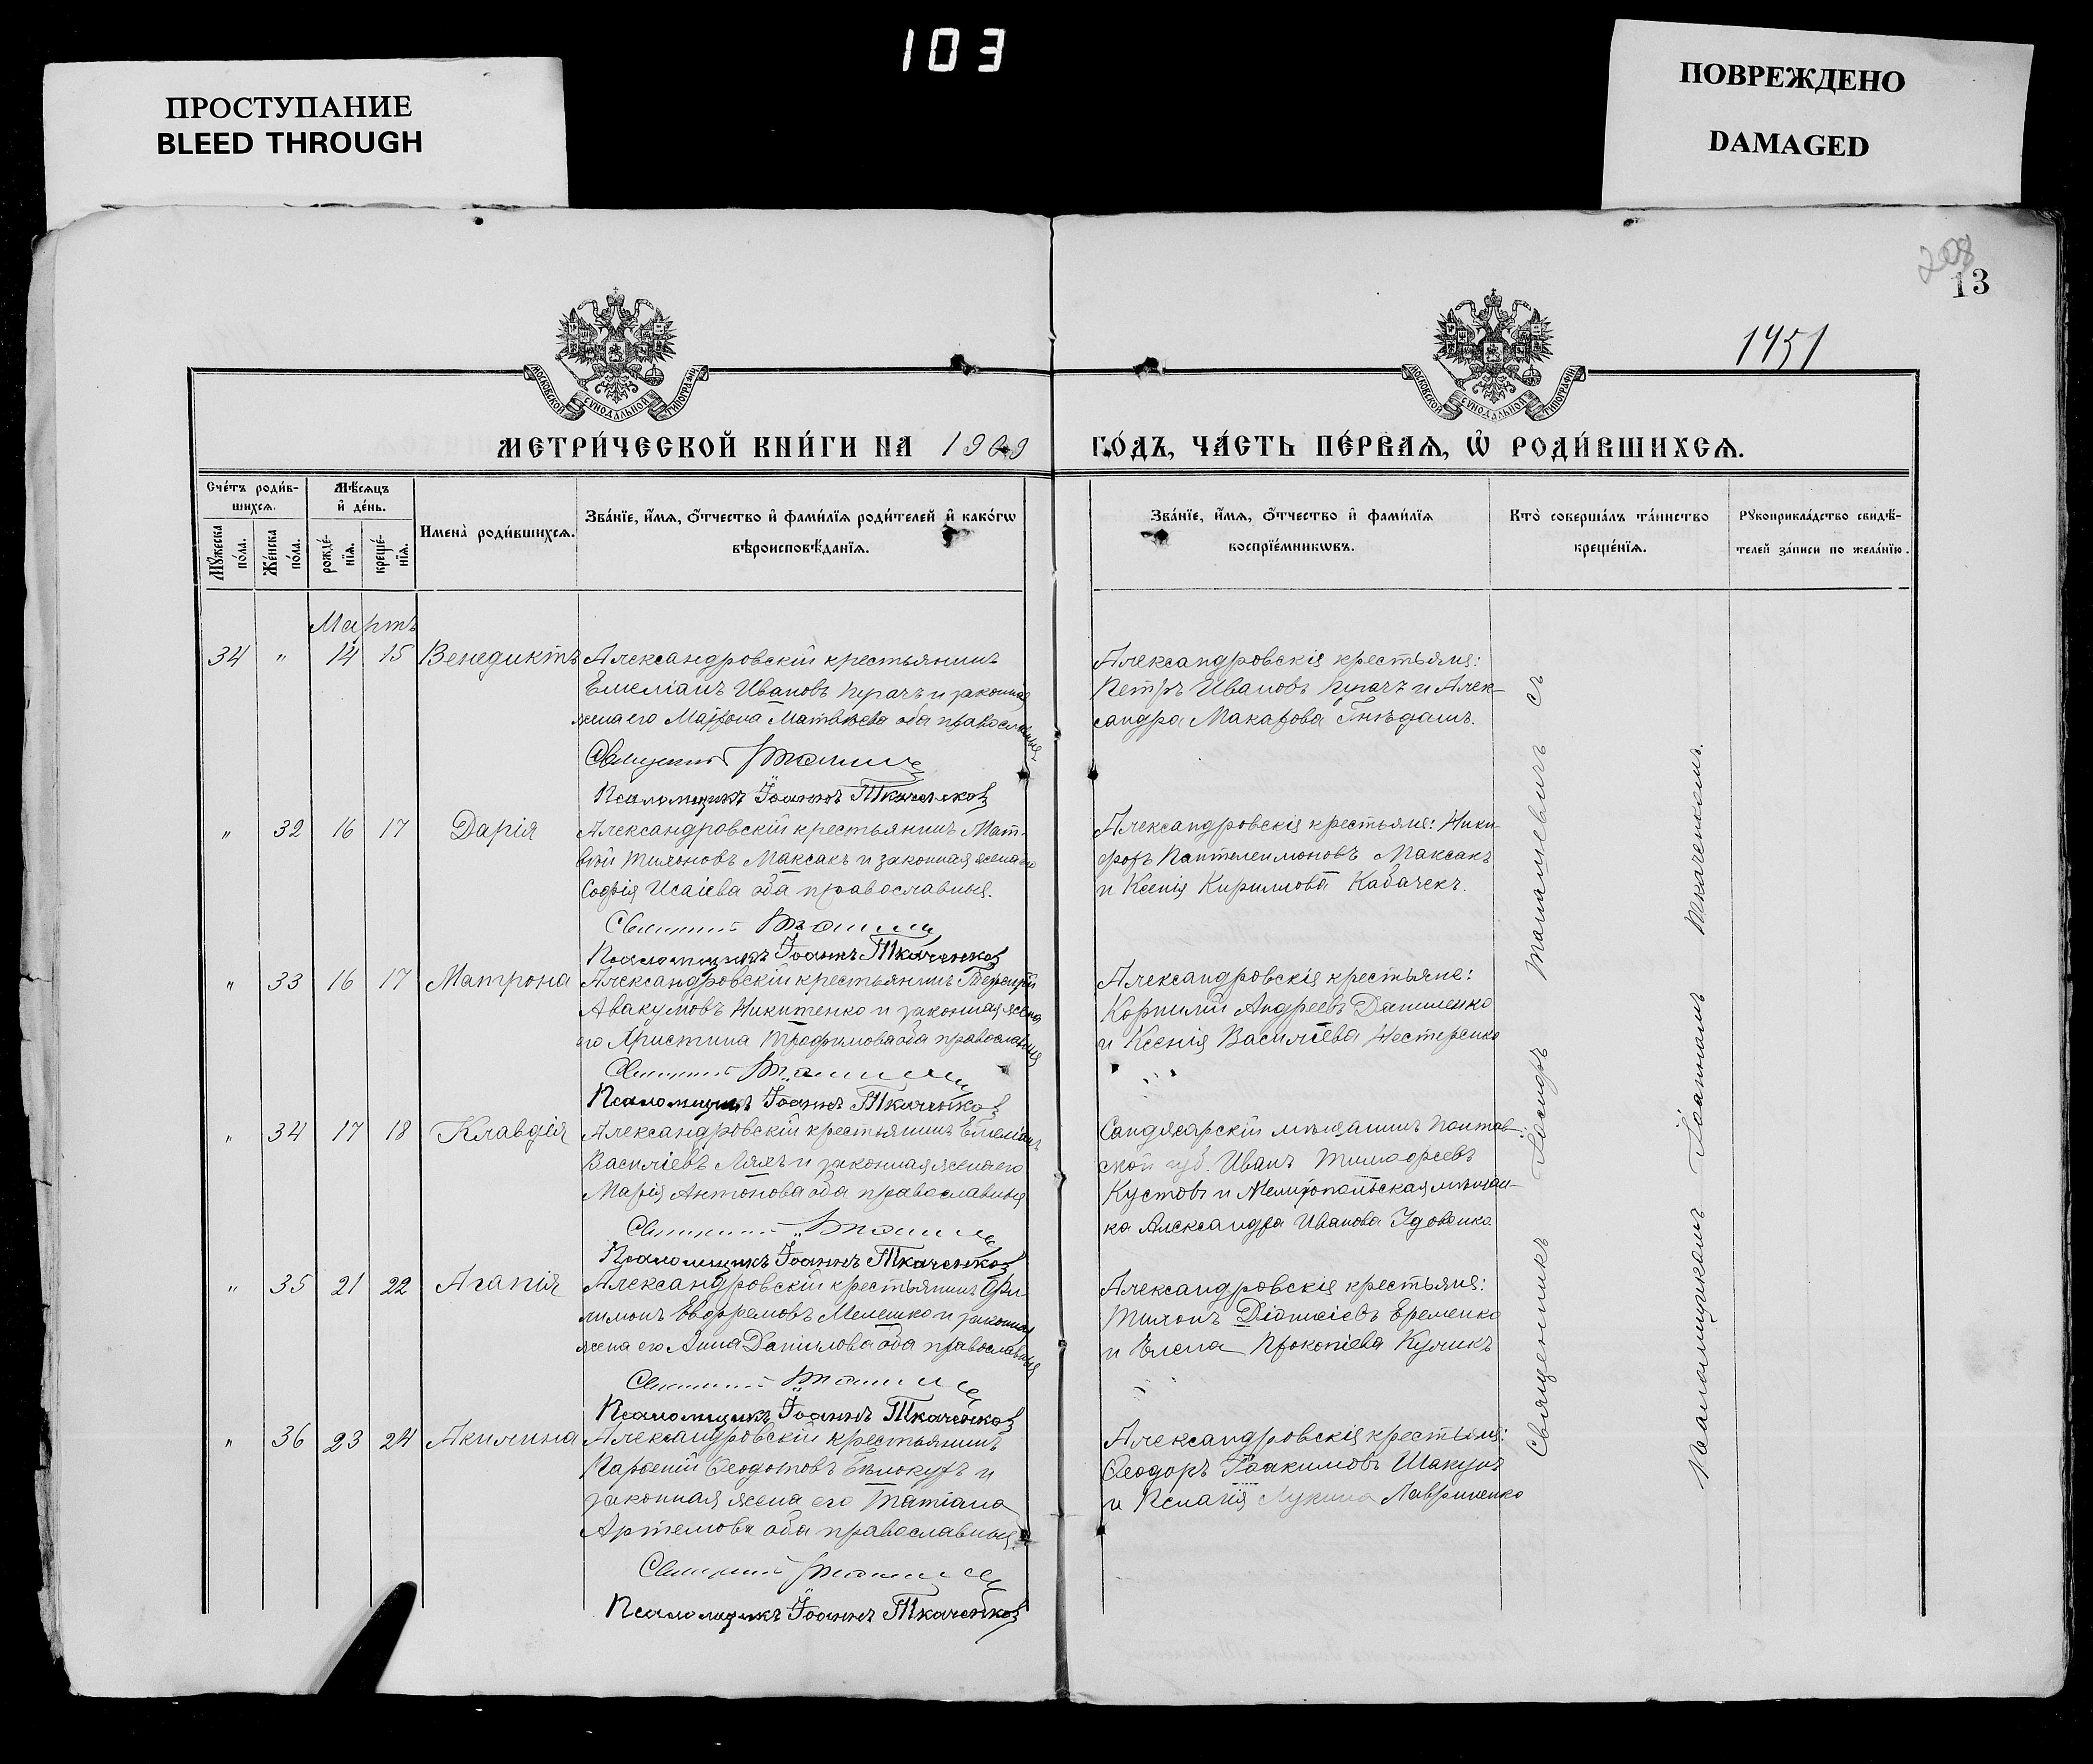 103
ПРОСТУПАНИЕ
BLEED THROUGH
ПОВРЕЖДЕНО
DAMAGED
208
13
1451
МОСКОВСКОЙ СѴНОДАЛЬНОЙ ТИПОГРАФІИ
МОСКОВСКОЙ СѴНОДАЛЬНОЙ ТИПОГРАФІИ
МЕТРИ́ЧЕСКОЙ КНИ́ГИ НА 1909
ГО́ДЪ, ЧА́СТЬ ПЕ́РВАѦ, Ѡ҆ РОДИ́ВШИХСѦ.
Сче́тъ роди́в-
шихсѧ.
Мꙋ́жеска по́ла.
Же́нска по́ла.
Мѣ́сѧцъ
и҆ де́нь.
рожде́-
нїѧ.
креще́-
нїѧ.
Имена̀ роди́вшихсѧ.
Зва́нїе, и҆́мѧ, ѻ҆́тчество и҆ фами́лїѧ роди́телей и҆ како́гѡ
вѣроисповѣ́данїѧ.
Зва́нїе, и҆́мѧ, ѻ҆́тчество и҆ фами́лїѧ
воспрїе́мникѡвъ.
Кто̀ соверша́лъ та́инство
креще́нїѧ.
Рꙋкоприкла́дство свидѣ́-
телей за́писи по жела́нїю.
Мартъ
34 " 14 15 Венедиктъ Александровскій крестьянинъ
Емеліанъ Ивановъ Пугачъ и законная
жена его Матрона Матвѣева оба православные
Священникъ
Псаломщикъ Іоаннъ Ткаченков
Александровскіе крестьяне:
Петръ Ивановъ Пугачъ и Алек-
сандра Макарова Гнѣдашъ.
" 32 16 17 Дарія Александровскій крестьянинъ Мат-
вѣй Тихоновъ Максакъ и законная жена его
Софія Исаіева оба православные.
Священникъ
Псаломщикъ Іоаннъ Ткаченков
Александровскіе крестьяне: Ники-
форъ Пантелеимоновъ Максакъ
и Ксенія Кирилова Кабачекъ.
" 33 16 17 Матрона Александровскій крестьянинъ
Авакумовъ Никитенко и законная жена
его Христина Трофимова оба православные
Священникъ
Псаломщикъ Іоаннъ Ткаченков
Александровскіе крестьяне:
Корнилій Андреевъ Даниленко
и Ксенія Василіева Нестеренко
" 34 17 18 Клавдія Александровскій крестьянинъ Емеліанъ
Василіевъ Ляхъ и законная жена его
Марія Антонова оба православные
Священникъ
Псаломщикъ Іоаннъ Ткаченков
Санджарскій мѣщанинъ Полтав-
ской губ. Иванъ Тимофеевъ
Кустовъ и Мелитопольская мѣщан-
ка Александра Иванова Удовенко
" 35 21 22 Агапія Александровскій крестьянинъ Фи-
лимонъ Евфремовъ Мелешко и законная
жена его Анна Данілова оба православные
Священникъ
Псаломщикъ Іоаннъ Ткаченков
Александровскіе крестьяне:
Тихонъ Еременко
и Елена Прокопіева Куликъ
" 36 23 24 Акилина Александровскій крестьянинъ
Парѳеній Ѳеодотовъ Бѣлокуръ и
законная жена его Татіана
Артемова оба православные.
Священникъ
Псаломщикъ Іоаннъ Ткаченков
Александровскіе крестьяне:
Ѳеодоръ Іоакимовъ Шакунъ
и Пелагія Лукина Лавриненко
Священникъ Іосифъ съ
Псаломщикомъ Іоанномъ Ткаченкомъ.